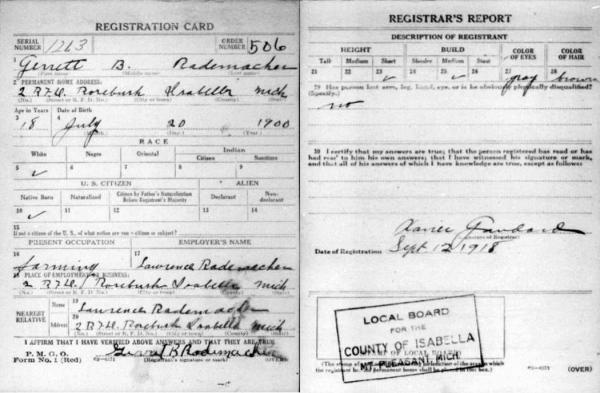 REGISTRATION CARD
SERIAL NUMBER 1263 ORDER NUMBER 506
1 Gerrett B. Rademacher
(First name) (Middle name) (Last name)
2 PERMANENT HOME ADDRESS:
2 R.F.D. Rosebush Isabella Mich
(No.) (Street or R. F. D. No.) (City or town) (County) (State)
Age in Years Date of Birth
3 18 4 July 20 1900
(Month) (Day) (Year)
RACE
White Negro Oriental Indian
Citizen Noncitizen
5 ✓ 6 7 8 9
U. S. CITIZEN ALIEN
Native Born Naturalized Citizen by Father's Naturalization Before Registrant's Majority Declarant Non-declarant
10 ✓ 11 12 13 14
15 If not a citizen of the U. S., of what nation are you a citizen or subject?
PRESENT OCCUPATION EMPLOYER'S NAME
16 farming 17 Lawrence Rademacher
18 PLACE OF EMPLOYMENT OR BUSINESS:
2 R.F.D. Rosebush Isabella Mich
(No.) (Street or R. F. D. No.) (City or town) (County) (State)
NEAREST RELATIVE Name 19 Lawrence Rademacher
Address 20 2 R.F.D. Rosebush Isabella Mich
(No.) (Street or R. F. D. No.) (City or town) (County) (State)
I AFFIRM THAT I HAVE VERIFIED ABOVE ANSWERS AND THAT THEY ARE TRUE
P. M. G. O.
Form No. 1 (Red) B Rademacher
(Registrant's signature or mark) (OVER)
REGISTRAR'S REPORT
DESCRIPTION OF REGISTRANT
HEIGHT BUILD COLOR OF EYES COLOR OF HAIR
Tall Medium Short Slender Medium Stout
21 22 23 ✓ 24 25 ✓ 26 27 gray 28 brown
29 Has person lost arm, leg, hand, eye, or is he obviously physically disqualified?
(Specify.)
no
30 I certify that my answers are true; that the person registered has read or has had read to him his own answers; that I have witnessed his signature or mark, and that all of his answers of which I have knowledge are true, except as follows:
Xavier
(Signature of Registrar)
Date of Registration Sept. 12, 1918
LOCAL BOARD
FOR THE
COUNTY OF ISABELLA
MT. PLEASANT, MICH.
(OVER)